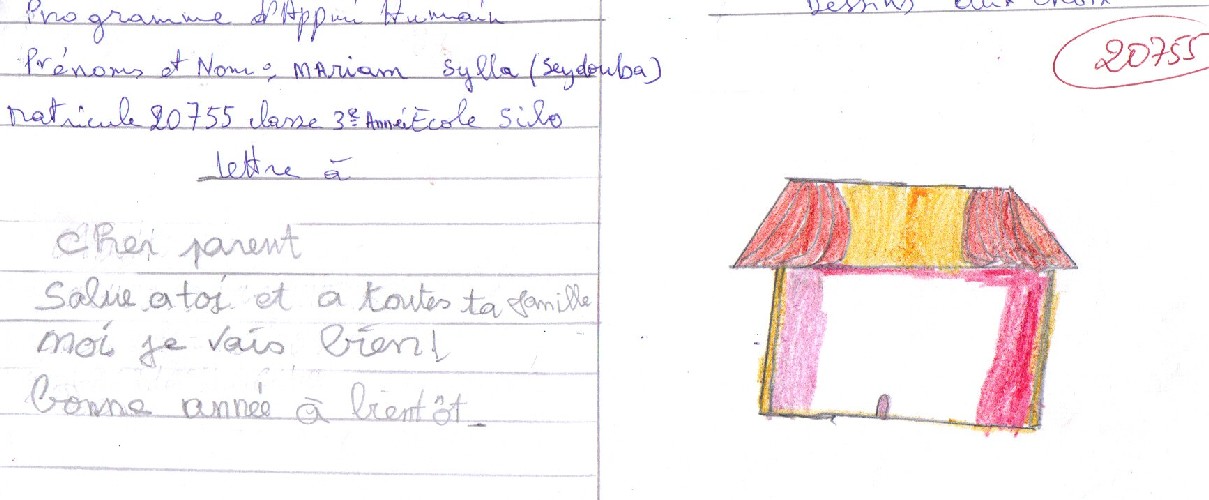 Programme d'Appui Humain
Prénoms et Nom: MAriam Sylla (Seydouba)
Matricule 20755 classe 3e Année École Silo
lettre à
Cher parent
Salue a toi et a toutes ta famille
moi je vais bien!
Bonne année à bientôt
Dessins aux
20755